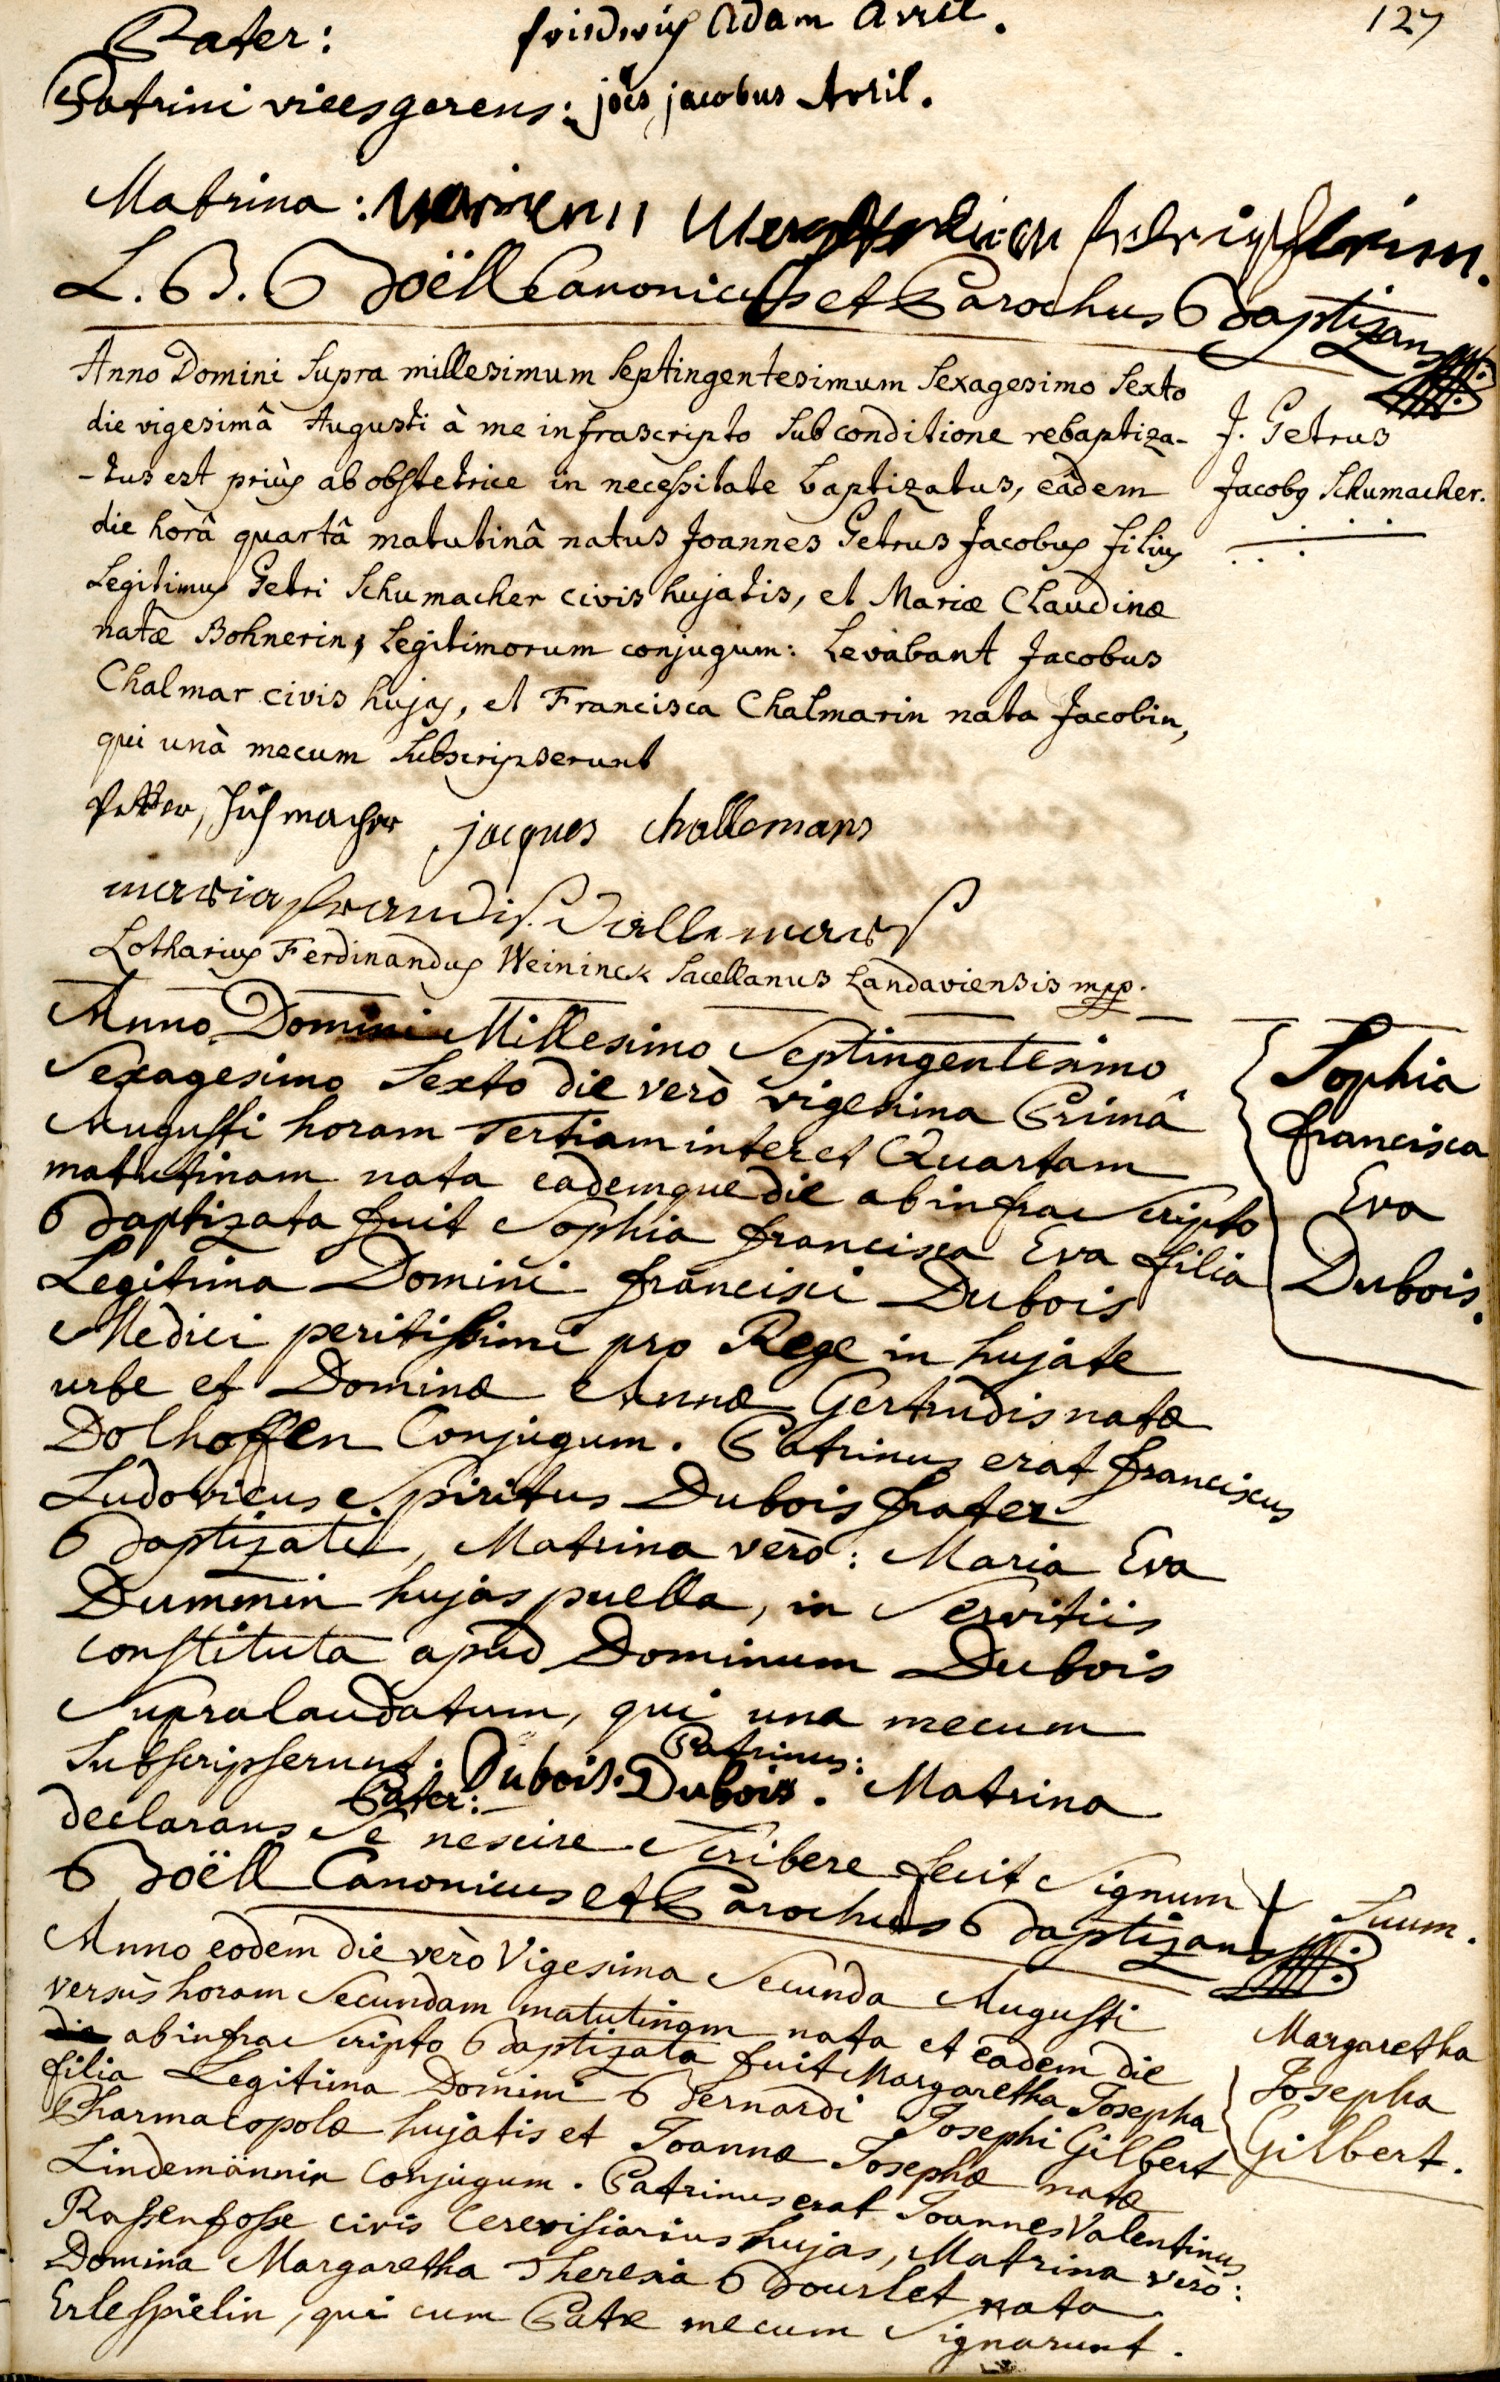 127
Pater: Adam Avril.
Patrini vicesgerens: jöes jacobus Avril.
Matrina:
L. B. Boëll Canonicus et Parochus Baptizans
Anno Domini Supra millesimum Septingentesimum Sexagesimo Sexto
die vigesimâ Augusti à me infrascripto Sub conditione rebaptiza-
-tus est priùs ab obstetrice in necessitate baptizatus, eâdem
die horâ quartâ matutinâ natus Joannes Petrus Jacobus filius
Legitimus Petri Schumacher civis hujatis, et Mariæ Claudinæ
natæ Bohnerin, Legitimorum conjugum: Levabant Jacobus
Chalmar civis hujas, et Francisca Chalmarin nata Jacobin,
qui unà mecum Subscripserunt
J. Petrus
Jacobus Schumacher.
Petter, Schumacher jacques challemans
maria
Lotharius Ferdinandus Weininck Sacellanus Landaviensis mpp.
Anno Domini Millesimo Septingentesimo
Sexagesimo Sexto die verò vigesima Primâ
Augusti horam Tertiam inter et Quartam
matutinam nata eademque die ab infra Scripto
Baptizata fuit Sophia francisca Eva filia
Legitima Domini francisci Dubois
Medici peritissimi pro Rege in hujate
urbe et Dominæ Annæ Gertrudis natæ
Dolhoffen Conjugum. Patrinus erat franciscus
Ludovicus Spiritus Dubois frater
Baptizatæ, Matrina verò: Maria Eva
Dummin hujas puella, in Servitiis
constituta apud Dominum Dubois
Supralaudatum, qui una mecum
Subscripserunt. Pater: Dubois. Patrinus: Dubois. Matrina
declarans Se nescire Scribere fecit Signum + Suum.
Boëll Canonicus et Parochus Baptizans
Sophia
francisca
Eva
Dubois.
Anno eodem die verò Vigesima Secunda Augusti
versùs horam Secundam matutinam nata et eadem die
die ab infra Scripto Baptizata fuit Margaretha Josepha
filia Legitima Domini Bernardi Josephi Gilbert
Pharmacopolæ hujatis et Joannæ Josephæ natæ
Lindemännin Conjugum. Patrinus erat Joannes Valentinus
Rassenfosse civis Cerevisiarius hujas, Matrina verò:
Domina Margaretha Theresia Bourlet nata
Erlespielin, qui cum Patre mecum Signarunt.
Margaretha
Josepha
Gilbert.